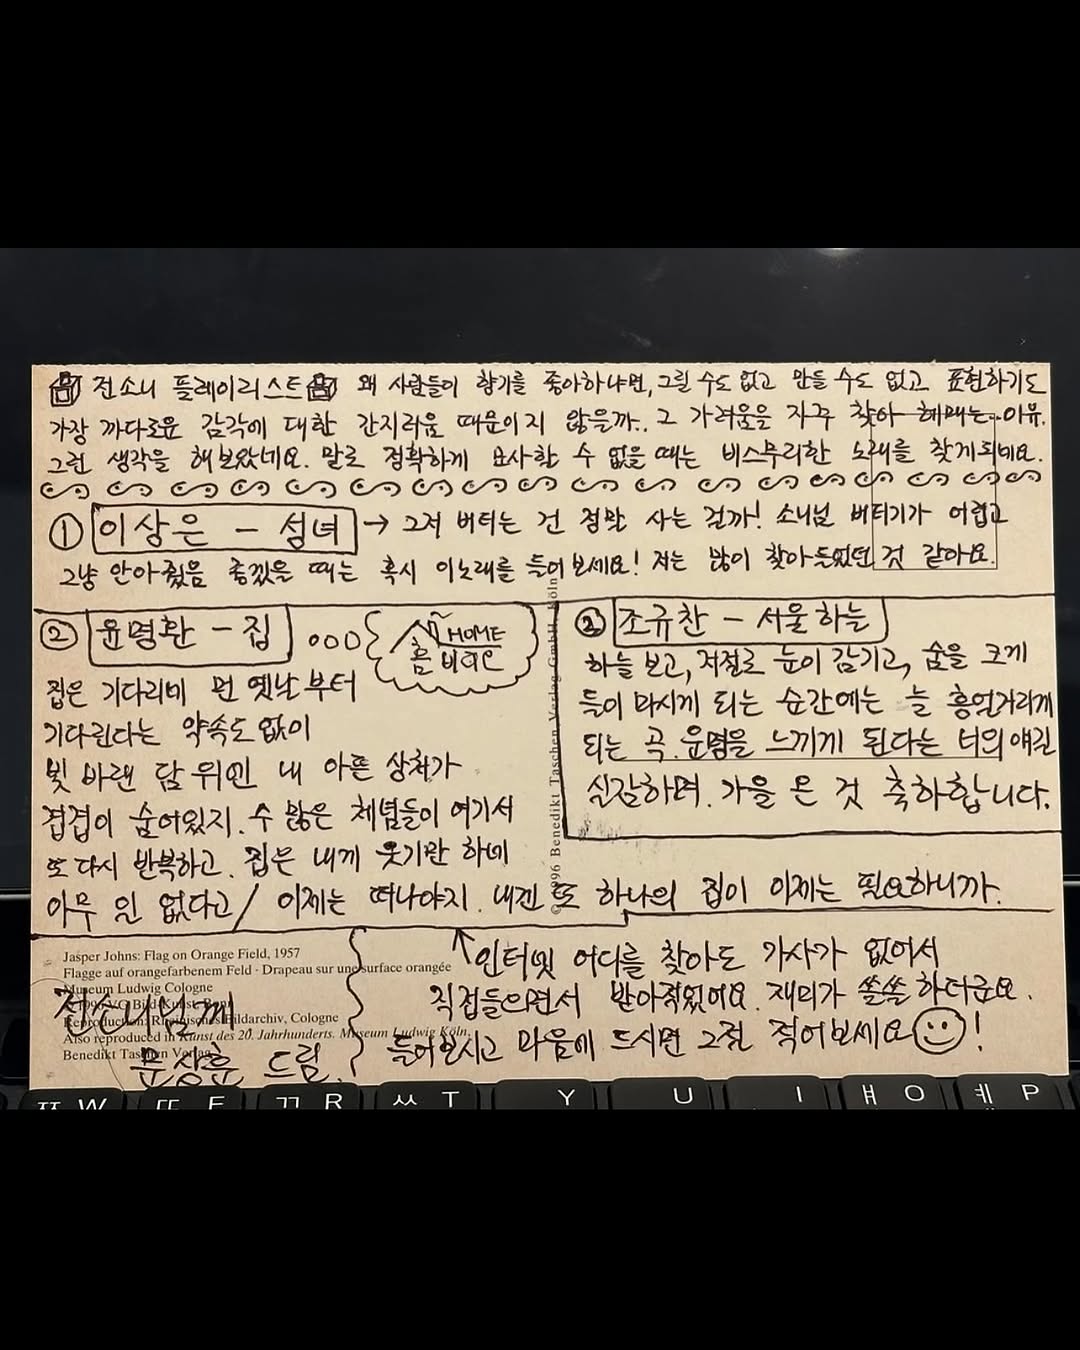 전소니 플레이리스트 왜 사람들이 향기를 좋아하냐면, 그릴 수도 없고 만들 수도 없고 표현하기도
가장 까다로운 감각에 대한 간지러움 때문이지 않을까.. 그 가려움을 자꾸 찾아 헤매는 이유.
그런 생각을 해보았네요. 말로 정확하게 묘사할 수 없을 때는 비스무리한 노래를 찾게되네요.
① 이상은 - 성녀 → 그저 버티는 건 정말 사는 걸까! 소니님 버티기가 어렵고
그냥 안아줬음 좋겠을 때는 혹시 이노래를 들어보세요! 저는 많이 찾아들었던 것 같아요.
② 윤명환 - 집 ooo HOME
홈 버려
집은 기다리네 먼 옛날부터
기다린다는 약속도 없이
빛 바랜 담 위엔 내 아픈 상처가
겹겹이 숨어있지. 수 많은 체념들이 여기서
또 다시 반복하고. 집은 내게 웃기만 하네
아무 일 없다고 / 이제는 떠나야지. 내겐 또 하나의 집이 이제는 필요하니까.
② 조규찬 - 서울하늘
하늘 보고, 저절로 눈이 감기고, 숨을 크게
들이 마시게 되는 순간에는 늘 흥얼거리게
되는 곡. 운명을 느끼게 된다는 너의 얘긴
실감하며. 가을 온 것 축하합니다.
↑ 인터넷 어디를 찾아도 가사가 없어서
직접들으면서 받아적었어요. 재미가 쏠쏠하더군요.
들어보시고 마음에 드시면 그걸 적어보세요 !
전소니님께
문상훈 드림.
Jasper Johns: Flag on Orange Field, 1957
Flagge auf orangefarbenem Feld · Drapeau sur une surface orangée
Museum Ludwig Cologne
© 1996 VG Bild-Kunst, Bonn
Reproduction: Rheinisches Bildarchiv, Cologne
Also reproduced in Kunst des 20. Jahrhunderts. Museum Ludwig Köln,
Benedikt Taschen Verlag
© 1996 Benedikt Taschen Verlag GmbH, Köln
ㅉ W ㄸ E ㄲ R ㅆ T Y U I ㅒ O ㅖ P